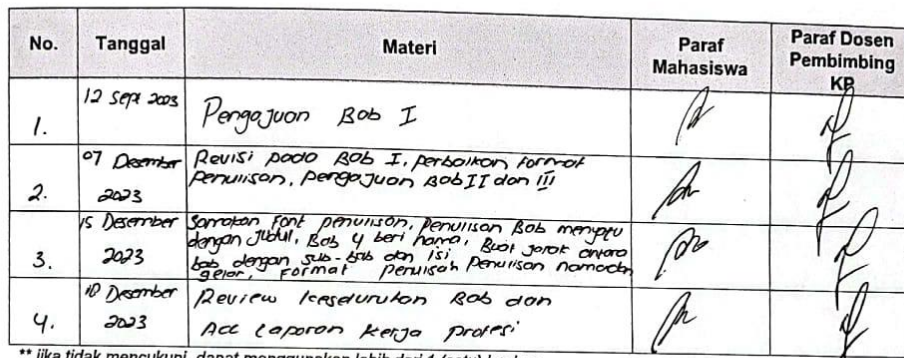 No. Tanggal Materi Paraf Mahasiswa Paraf Dosen Pembimbing KP
1. 12 Sept 2023 Pengajuan Bab I
2. 07 Desember 2023 Revisi pada Bab I, perbaikan format
penulisan, pengajuan Bab II dan III
3. 15 Desember 2023 Samakan font penulisan, penulisan Bab menyatu
dengan judul, Bab 4 beri nama, Buat jarak antara
bab dengan sub-bab dan isi, penulisan nama dan
gelar, format penulisan
4. Desember 2023 Review keseluruhan Bab dan
Acc Laporan kerja profesi
** jika tidak mencukupi, dapat menggunakan lebih dari 1 (satu)